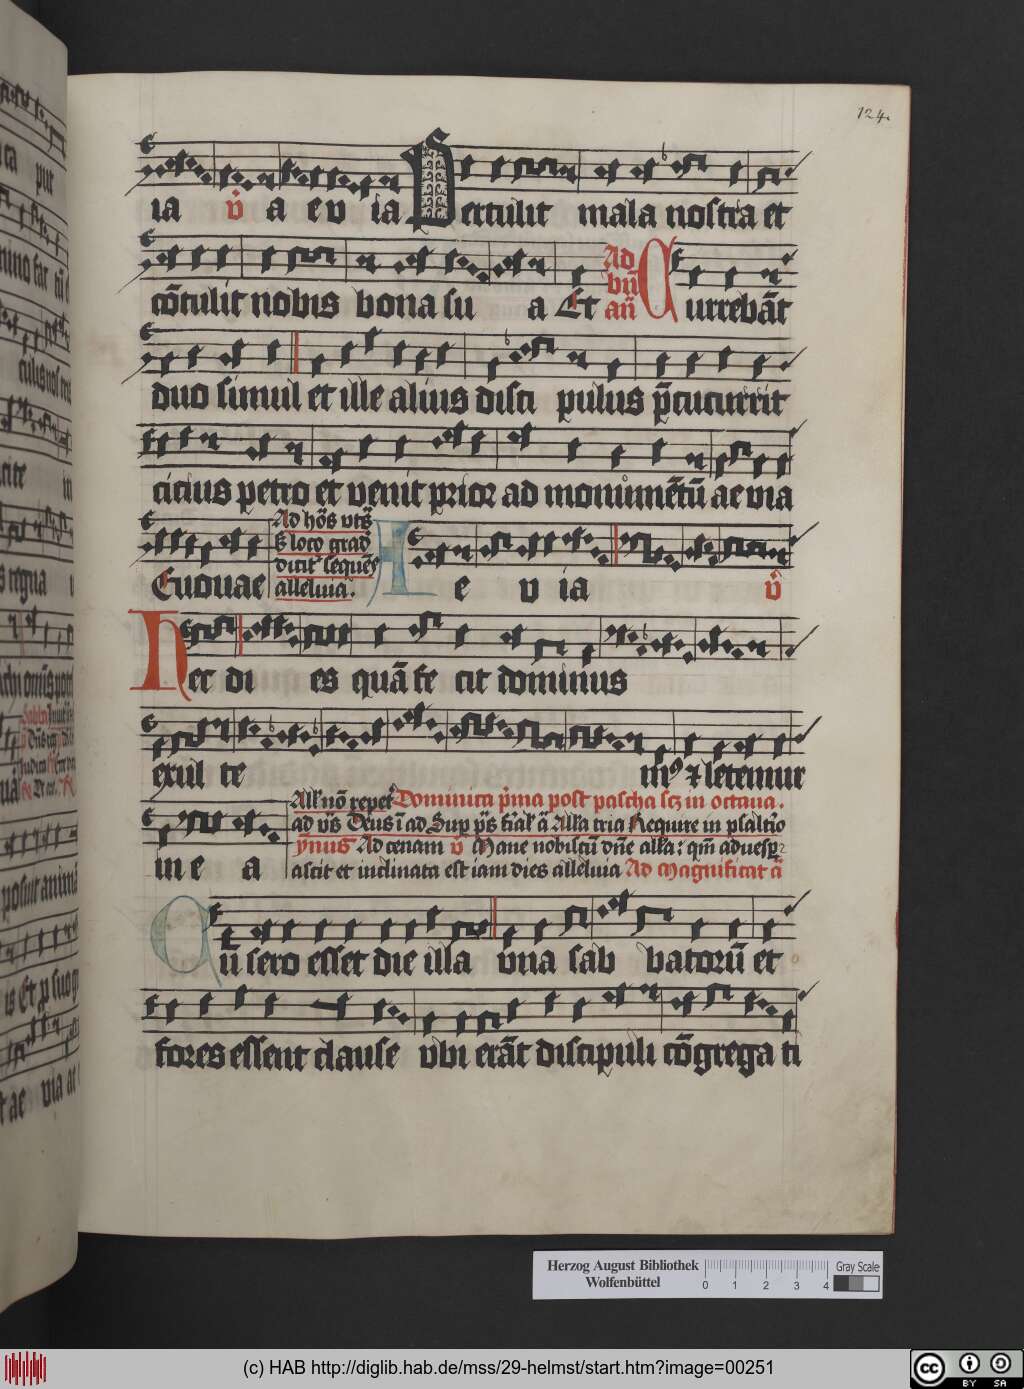 124.
ia v̄ a e v ia Pertulit mala nostra et
cōtulit nobis bona su a Et Ad bn̄ an̄ Currebāt
duo simul et ille alius disci pulus p̄cucurrit
cicius petro et venit prior ad monumētū ae via
Euouae Ad hōs vt̄s
loco grad
dicit seques
alleluia. A e v ia v̄
Hec di es quā fe cit dominus
exul te m9 ⁊ letemur
in e a All'a nō repet' Dominica p̄ma post pascha scz in octaua.
ad v̄s Deus ī ad Sup p̄s All'a tria Require in psaltīo
ynnus Ad cenam v̄ Mane nobiscū dn̄e all'a: qm̄ aduesp
ascit et inclinata est iam dies alleluia Ad Magnificat ā
Cū sero esset die illa vna sab batorū et
fores essent clause vbi erāt discipuli cōgrega ti
Herzog August Bibliothek
Wolfenbüttel
0 1 2 3 4
Gray Scale
(c) HAB http://diglib.hab.de/mss/29-helmst/start.htm?image=00251
cc BY SA